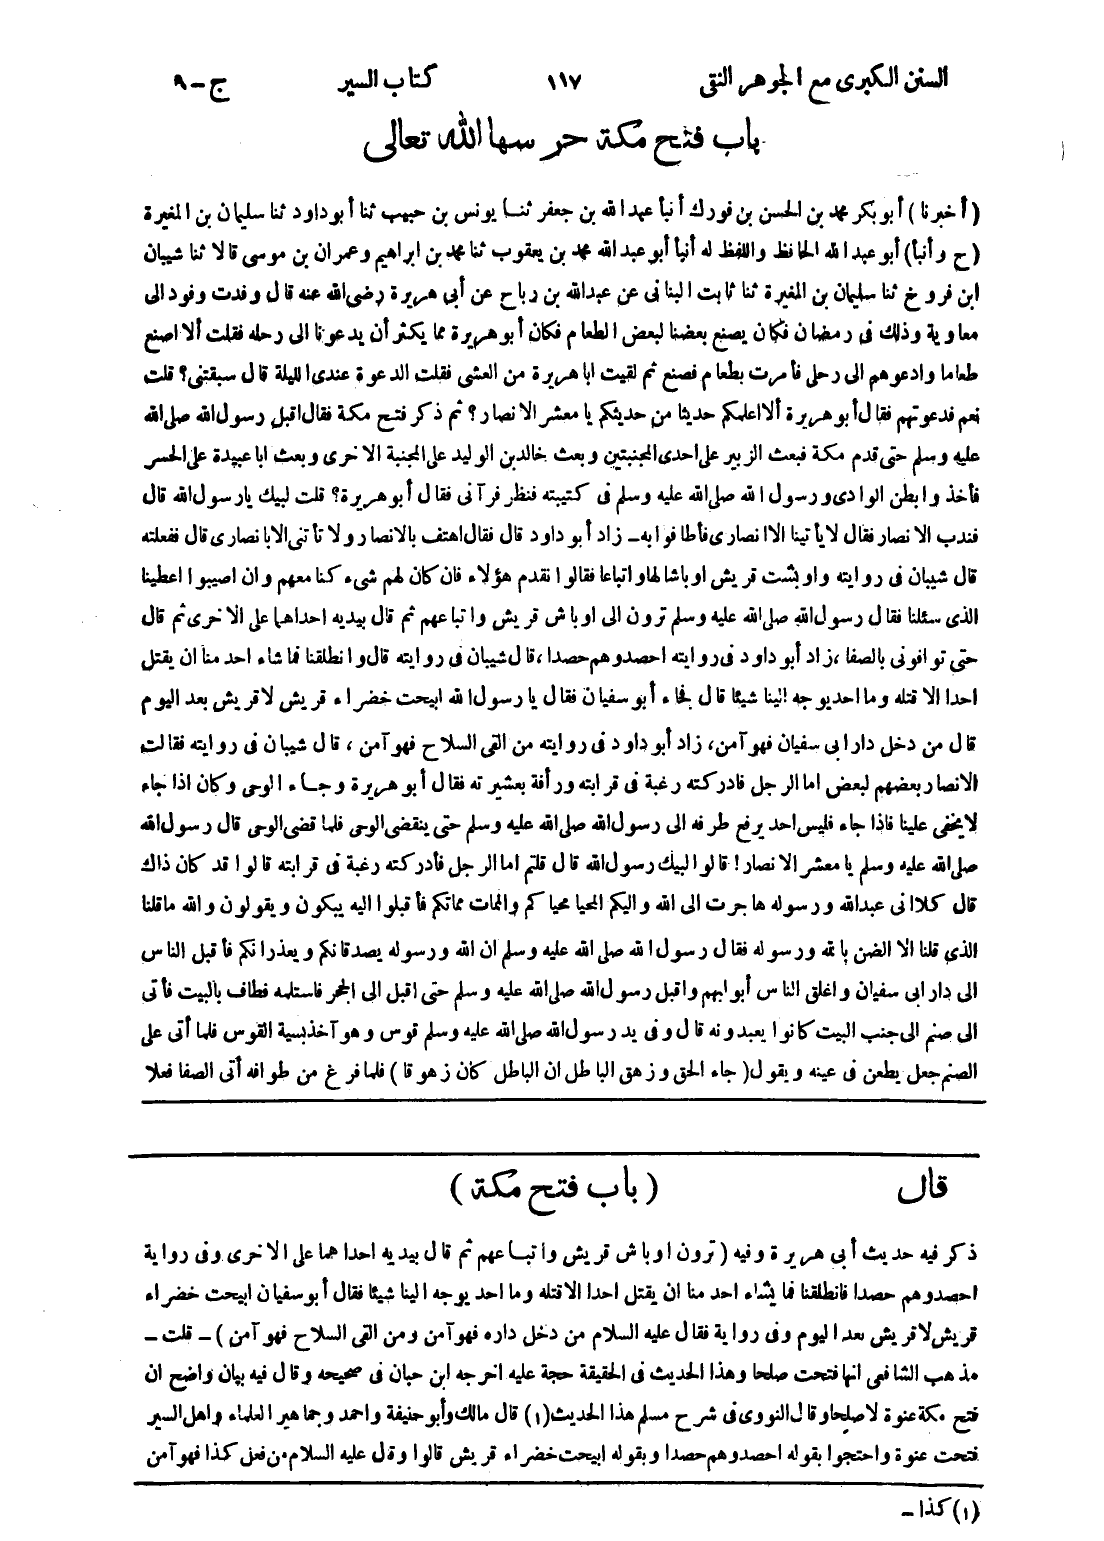 السنن الكبرى مع الجوهر النقى ١١٧ كتاب السير ج-٩
باب فتح مكة حرسها الله تعالى
(أخبرنا) أبو بكر محمد بن الحسن بن فورك أنبأ عبد الله بن جعفر ثنا يونس بن حبيب ثنا أبو داود ثنا سليمان بن المغيرة
(ح وأنبأ) أبو عبد الله الحافظ واللفظ له أنبأ أبو عبد الله محمد بن يعقوب ثنا محمد بن ابراهيم وعمران بن موسى قالا ثنا شيبان
ابن فروخ ثنا سليمان بن المغيرة ثنا ثابت البنانى عن عبدالله بن رباح عن أبي هريرة رضى الله عنه قال وفدت وفود الى
معاوية وذلك فى رمضان فكان يصنع بعضنا لبعض الطعام فكان أبو هريرة مما يكثر أن يدعونا الى رحله فقلت ألا اصنع
طعاما وادعوهم الى رحلى فأمرت بطعام فصنع ثم لقيت ابا هريرة من العشى فقلت الدعوة عندى الليلة قال سبقتنى؟ قلت
نعم فدعوتهم فقال أبو هريرة ألا اعلمكم حديثا من حديثكم يا معشر الانصار؟ ثم ذكر فتح مكة فقال اقبل رسول الله صلى الله
عليه وسلم حتى قدم مكة فبعث الزبير على احدى المجنبتين وبعث خالد بن الوليد على المجنبة الاخرى وبعث ابا عبيدة على الحسر
فأخذ وا بطن الوادى ورسول الله صلى الله عليه وسلم فى كتيبته فنظر فرآنى فقال أبو هريرة؟ قلت لبيك يا رسول الله قال
فندب الانصار فقال لا يأتينا الا انصارى فأطافوا به - زاد أبو داود قال فقال اهتف بالانصار ولا تأتنى الا بانصارى قال ففعلته
قال شيبان فى روايته واوبشت قريش اوباشا لها واتباعا فقالوا نقدم هؤلاء فان كان لهم شىء كنا معهم وان اصيبوا اعطينا
الذى سئلنا فقال رسول الله صلى الله عليه وسلم ترون الى اوباش قريش واتباعهم ثم قال بيديه احداهما على الاخرى ثم قال
حتى توافونى بالصفا ، زاد أبو داود فى روايته احصدوهم حصدا ، قال شيبان فى روايته قال وانطلقنا فما شاء احد منا ان يقتل
احدا الا قتله وما احد يوجه الينا شيئا قال فجاء أبو سفيان فقال يا رسول الله ابيحت خضراء قريش لا قريش بعد اليوم
قال من دخل دار ابى سفيان فهو آمن، زاد أبو داود فى روايته من القى السلاح فهو آمن ، قال شيبان فى روايته فقالت
الانصار بعضهم لبعض اما الرجل فادركته رغبة فى قرابته ورأفة بعشيرته فقال أبو هريرة وجاء الوحى وكان اذا جاء
لا يخفى علينا فاذا جاء فليس احد يرفع طرفه الى رسول الله صلى الله عليه وسلم حتى ينقضى الوحى فلما قضى الوحى قال رسول الله
صلى الله عليه وسلم يا معشر الانصار! قالوا لبيك رسول الله قال قلتم اما الرجل فأدركته رغبة فى قرابته قالوا قد كان ذاك
قال كلا انى عبدالله ورسوله هاجرت الى الله واليكم المحيا محياكم والممات مماتكم فأقبلوا اليه يبكون ويقولون والله ما قلنا
الذي قلنا الا الضن بالله ورسوله فقال رسول الله صلى الله عليه وسلم ان الله ورسوله يصدقانكم ويعذرانكم فأقبل الناس
الى دار ابى سفيان واغلق الناس أبوابهم واقبل رسول الله صلى الله عليه وسلم حتى اقبل الى الحجر فاستلمه فطاف بالبيت فأتى
الى صنم الى جنب البيت كانوا يعبدونه قال وفى يد رسول الله صلى الله عليه وسلم قوس وهو آخذ بسية القوس فلما أتى على
الصنم جعل يطعن فى عينه ويقول (جاء الحق وزهق الباطل ان الباطل كان زهوقا) فلما فرغ من طوافه أتى الصفا فعلا
قال (باب فتح مكة)
ذكر فيه حديث أبي هريرة وفيه (ترون اوباش قريش واتباعهم ثم قال بيديه احداهما على الاخرى وفى رواية
احصدوهم حصدا فانطلقنا فما يشاء احد منا ان يقتل احدا الا قتله وما احد يوجه الينا شيئا فقال أبو سفيان ابيحت خضراء
قريش لا قريش بعد اليوم وفى رواية فقال عليه السلام من دخل داره فهو آمن ومن القى السلاح فهو آمن) - قلت -
مذهب الشافعى انها فتحت صلحا وهذا الحديث فى الحقيقة حجة عليه اخرجه ابن حبان فى صحيحه وقال فيه بيان واضح ان
فتح مكة عنوة لا صلحا وقال النووى فى شرح مسلم هذا الحديث (١) قال مالك وأبو حنيفة واحمد وجماهير العلماء واهل السير
فتحت عنوة واحتجوا بقوله احصدوهم حصدا وبقوله ابيحت خضراء قريش قالوا وقال عليه السلام من فعل كذا فهو آمن
(١) كذا -